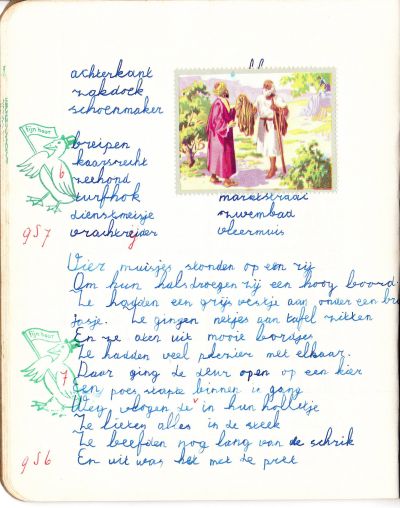 achterkant
zakdoek
schoenmaker
Fijn hoor
breipen
kaarsrecht
6
zeehond
turfhok
marktstraal
dienstmeisje
zwembad
957
vrachtrejder
vleermuis
Vier muisjes stonden op een rij
Om hun hals droegen zij een hoog boord.
Ze hadden een grijs vestje aan onder een
jasje. Ze gingen netjes aan tafel zitten
Fijn hoor
En ze aten uit mooie bordjes
Ze hadden veel plezier met elkaar.
7
Daar ging de deur open op een kier
Een poes stapte binnen in gang
Weg vlogen ze in hun holletje
v
Ze lieten alles in de steek
Ze beefden nog lang van de schrik
956
En uit was het met de pret